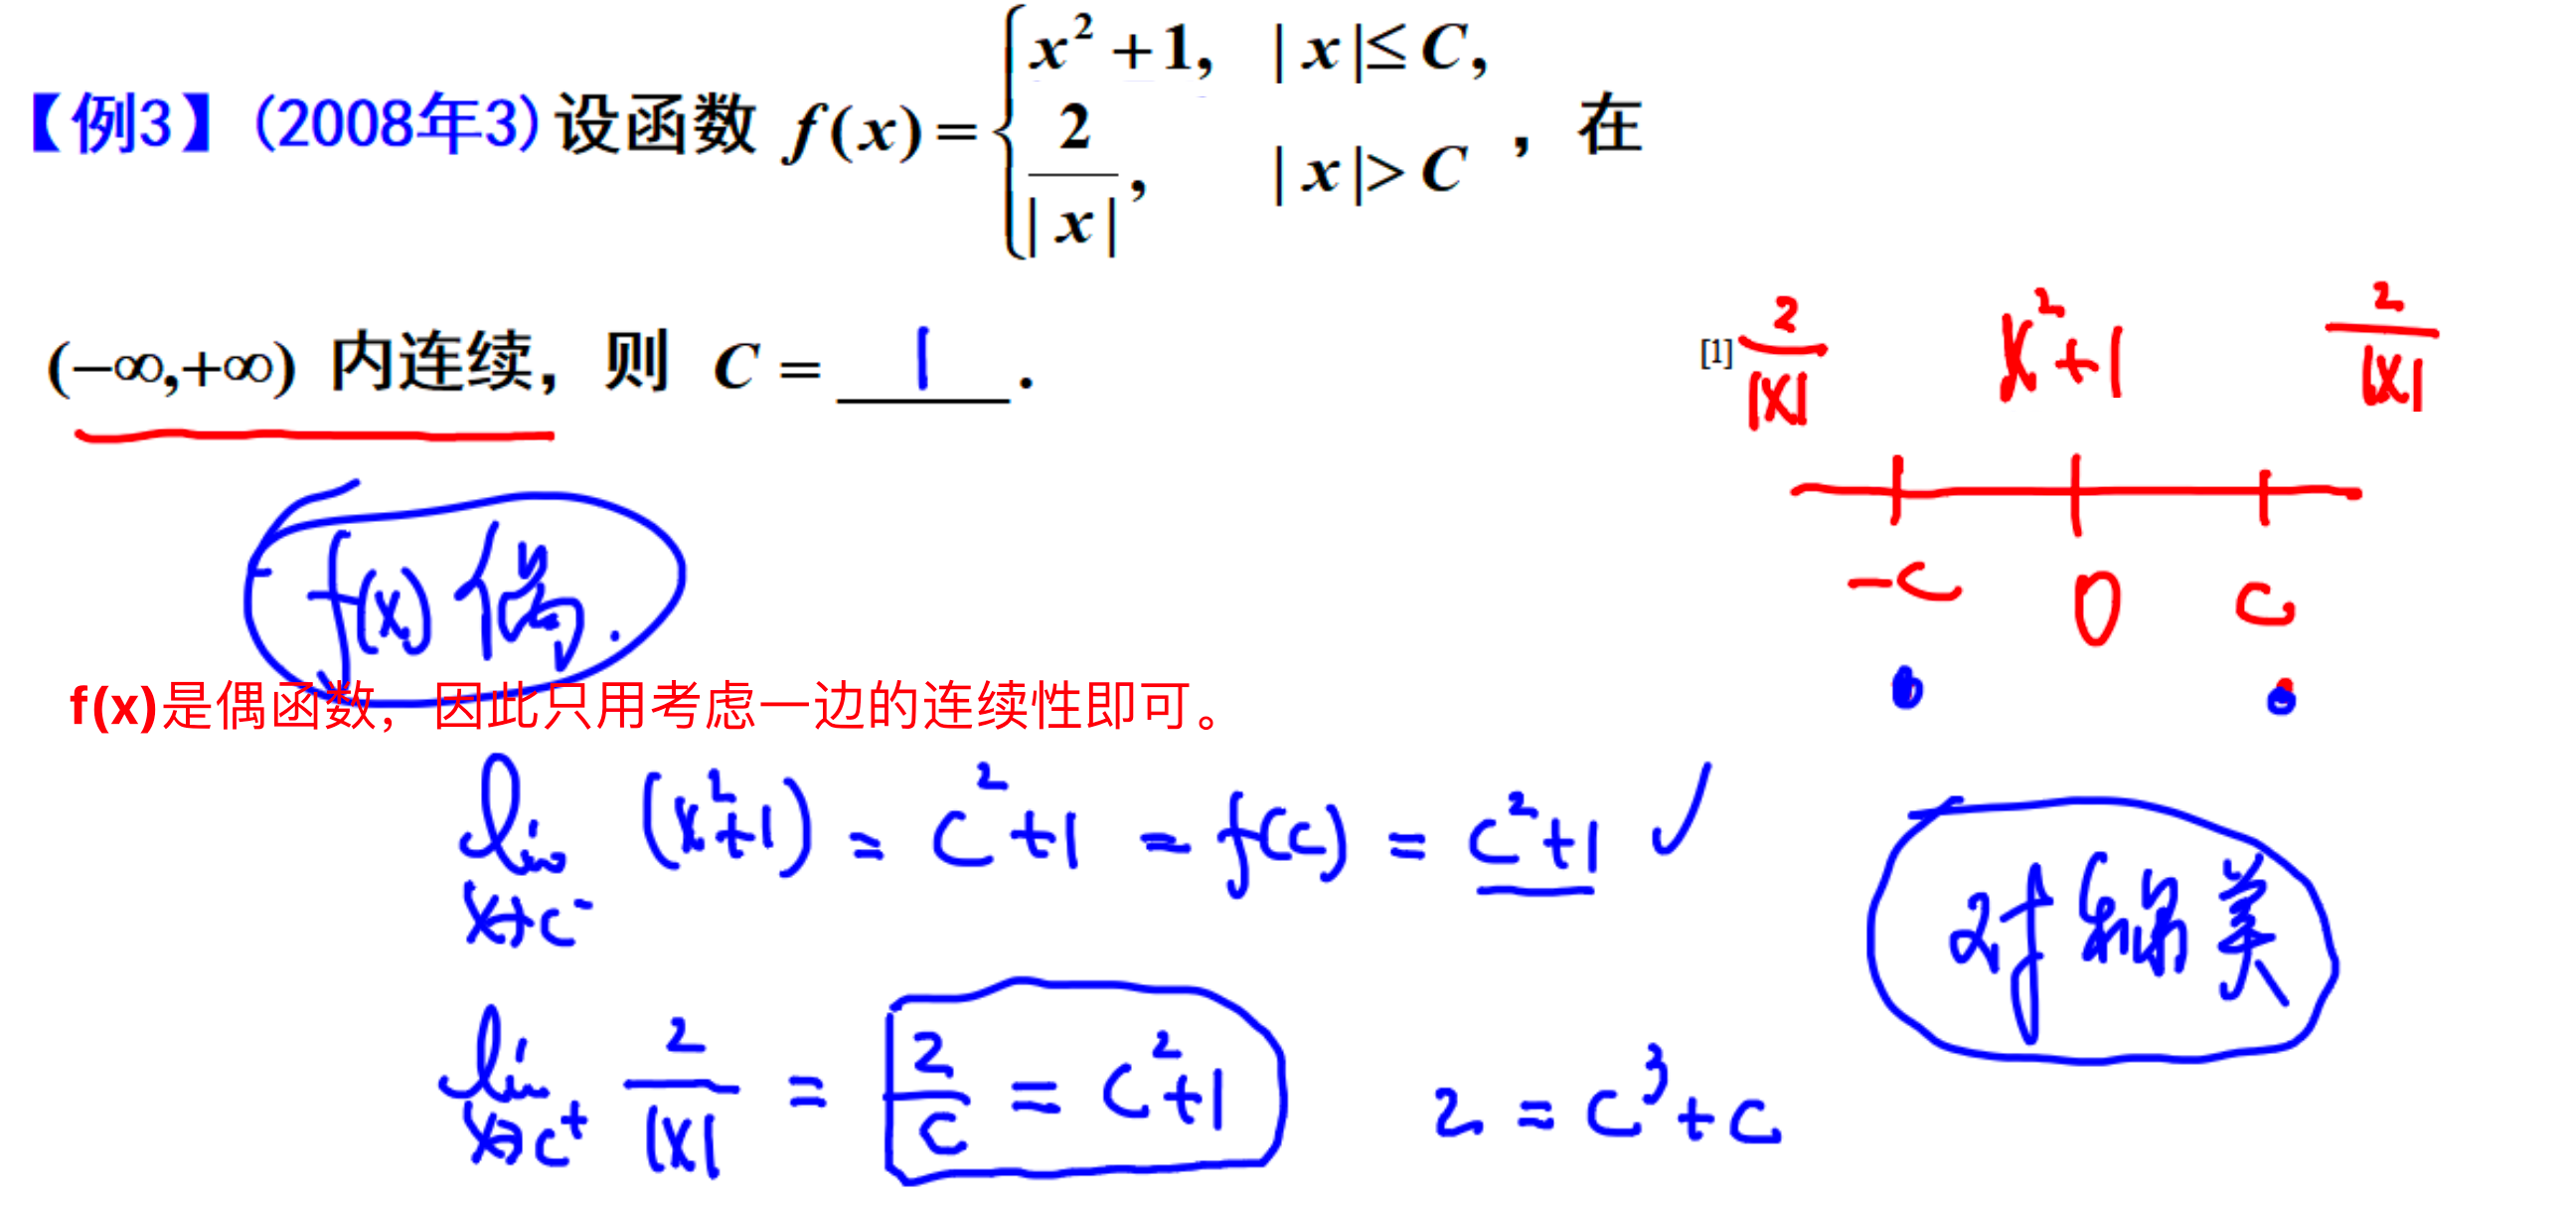 【例3】(2008年3)设函数 f(x) = { x² + 1, | x |≤ C,
2/| x |, | x |> C ，在
(−∞,+∞) 内连续，则 C = 1 .
[1] 2/|x| x²+1 2/|x|
-C 0 C
f(x) 偶.
f(x)是偶函数，因此只用考虑一边的连续性即可。
lim x→c⁻ (x²+1) = c²+1 = f(c) = c²+1 ✓
对称美
lim x→c⁺ 2/|x| = 2/c = c²+1 2 = c³+c